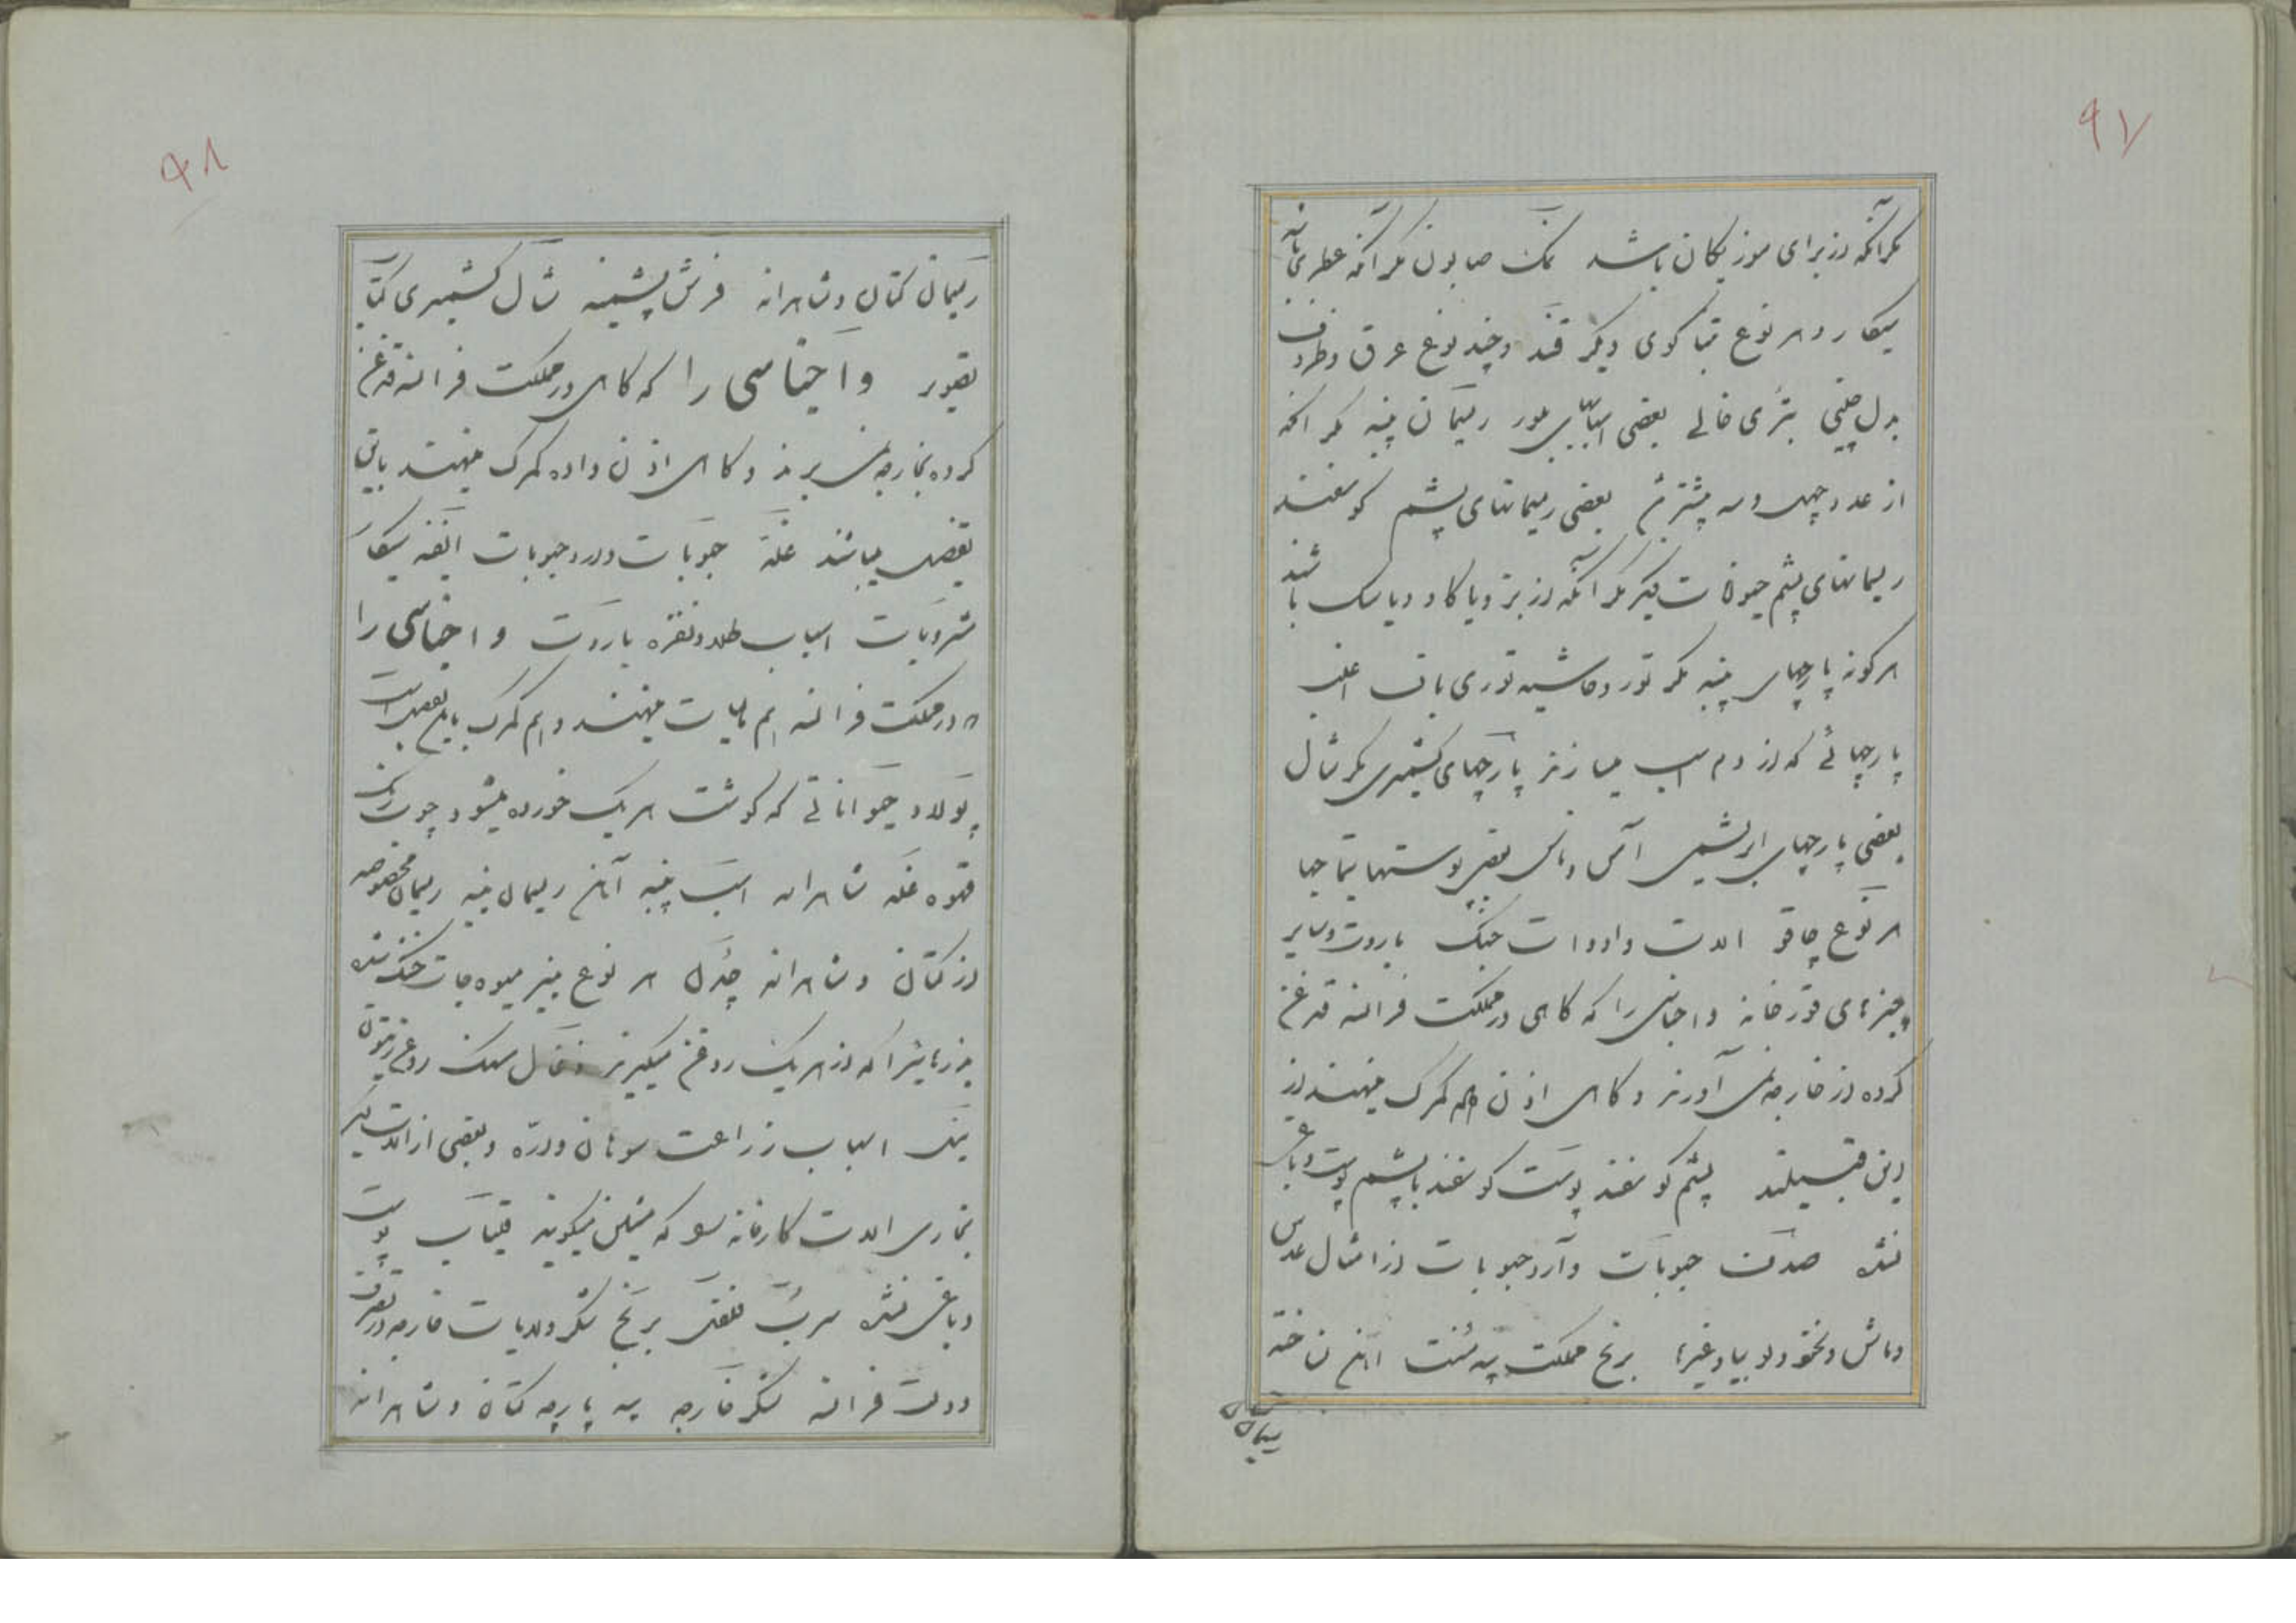 ۹۷
مکر آنکه از برای موزیکان باشد نمک صابون مکر آنکه عطری باشد
سیکار و هر نوع تنباکوی دیکر قند و چند نوع عرق و ظروف
بدل چینی بتری خالی بعضی اسباب بلور ریسمان پنبه مکر انکه
از عدد چهل و سه بیشتر بعضی ریسمانهای پشم کوسفند
ریسمانهای پشم حیوانات دیکر مکر آنکه از بز و یا کاو و یا سک باشد
هر کونه پارچهای پنبه مکر تور و حاشیه توری باف اغلب
پارچهائی که از دم اسب میسازند پارچهای کشمیری مکر شال
بعضی پارچهای ابریشمی بعضی پوستها تیماجها
هر نوع چاقو الات و ادوات جنک باروت و سایر
چیزهای قورخانه و اجناسی را که کاهی در مملکت فرانسه قدغن
کرده از خارجه نمی آورند و کاهی اذن داده کمرک مینهند از
این قبیلند پشم کوسفند پوست کوسفند با پشم پوست دباغی
نشده صدف حبوبات و آرد حبوبات از امثال عدس
و ماش و نخود و لوبیا و غیرها برنج مملکت آهن ساخته
ریسمان
۹۸
ریسمان کتان و شاهدانه فرش پشمینه شال کشمیری کتاب
تصویر و اجناسی را که کاهی در مملکت فرانسه قدغن
کرده بخارجه نمی برند و کاهی اذن داده کمرک مینهند باین
تفصیل میباشد غله حبوبات و ارد حبوبات انفیه سیکار
مشروبات اسباب طلا و نقره باروت و اجناسی را
که در مملکت فرانسه هم مالیات مینهند و هم کمرک باین تفصیل است
پولاد حیواناتی که کوشت هر یک خورده میشود چوب رنک
قهوه غله شاهدانه اسب پنبه آهن ریسمان پنبه ریسمان مخصوصه
از کتان و شاهدانه چدن هر نوع پنیر میوه جات خشک شده
بزرهائیرا که از هر یک روغن میکیرند ذغال سنک روغن زیتون
ینک اسباب زراعت سوهان و اره و بعضی از الات دیکر
نجاری الات کارخانه که میکویند قیتاب پوست
دباغی نشده سرب فلفل برنج شکر ولایات خارجه در تصرف
دولت فرانسه شکر خارجه پیه پارچه کتان و شاهدانه